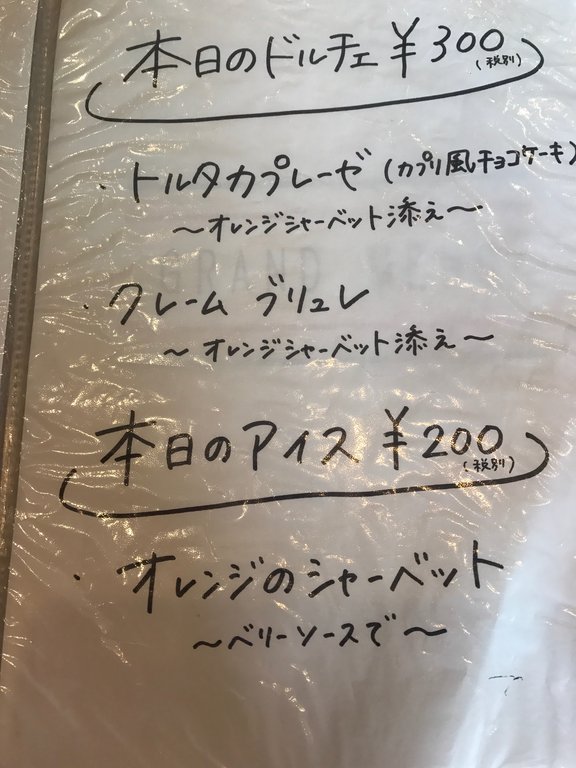 本日のドルチェ ¥300(税別)
・トルタカプレーゼ(カプリ風チョコケーキ)
〜オレンジシャーベット添え〜
・クレーム ブリュレ
〜オレンジシャーベット添え〜
本日のアイス ¥200(税別)
・オレンジのシャーベット
〜ベリーソースで〜